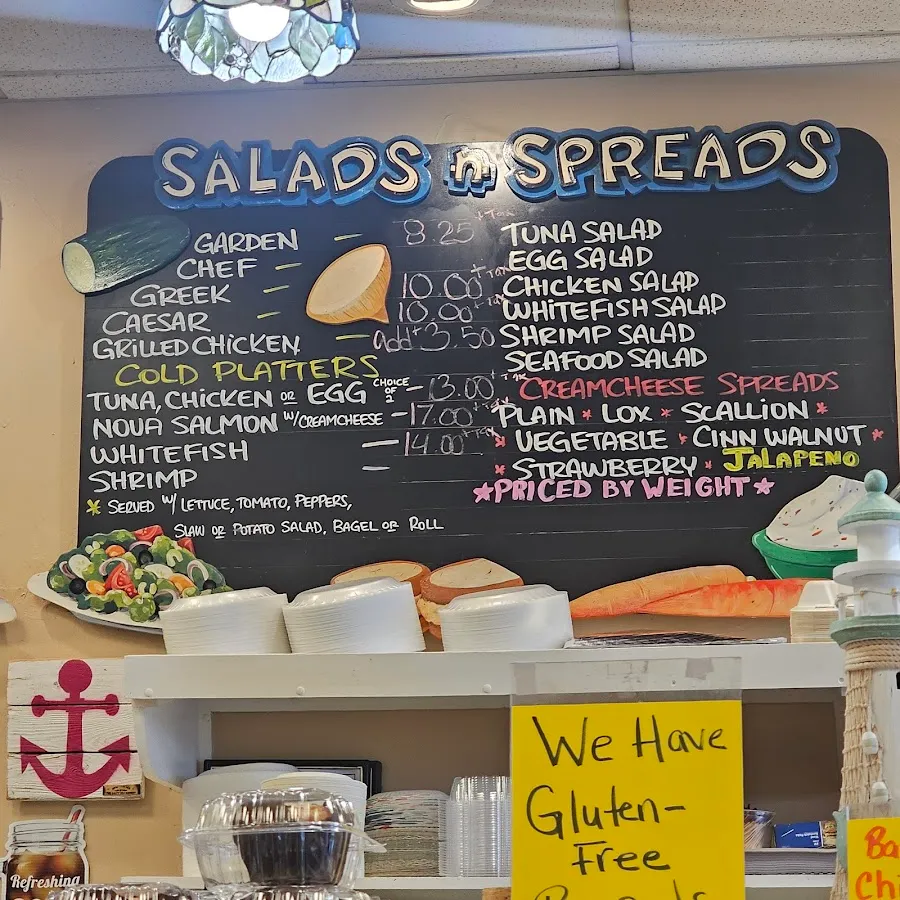 SALADS n SPREADS
GARDEN – 8.25 + Tax
CHEF –
GREEK – 10.00 + Tax
CAESAR – 10.00 + Tax
GRILLED CHICKEN – add + 3.50
COLD PLATTERS
TUNA, CHICKEN OR EGG CHOICE OF 2 – 13.00 + Tx
NOVA SALMON W/CREAMCHEESE – 17.00 + Tax
WHITEFISH – 14.00 + Tax
SHRIMP –
* SERVED W/ LETTUCE, TOMATO, PEPPERS,
SLAW OR POTATO SALAD, BAGEL OR ROLL
TUNA SALAD
EGG SALAD
CHICKEN SALAD
WHITEFISH SALAD
SHRIMP SALAD
SEAFOOD SALAD
CREAMCHEESE SPREADS
PLAIN * LOX * SCALLION *
* VEGETABLE * CINN WALNUT *
* STRAWBERRY * JALAPENO
★PRICED BY WEIGHT★
We Have
Gluten-
Free
Refreshing
Ba
Chi